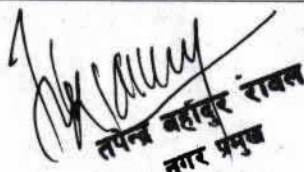 तपेन्द्र बहादुर रावल
नगर प्रमुख